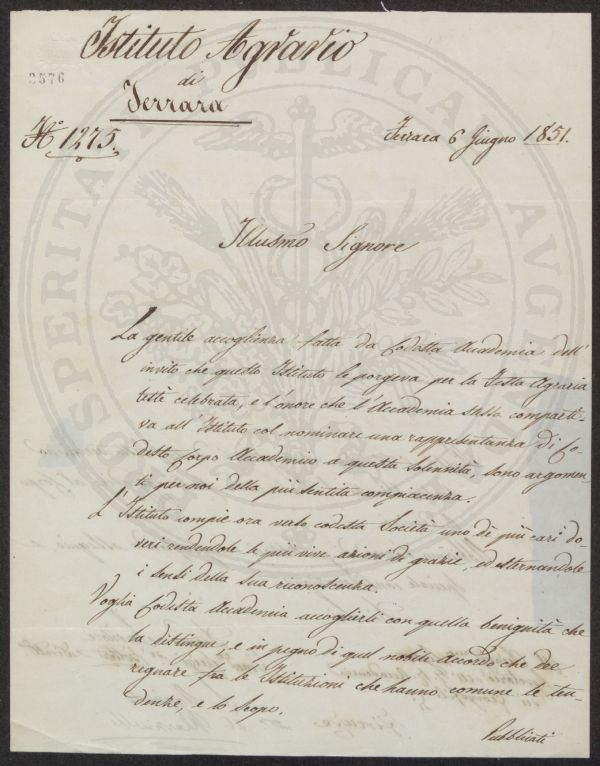 Istituto Agrario
di
Ferrara
2576
N.° 1275.
Ferrara 6 Giugno 1851.
Illusmo Signore
La gentile accoglienza fatta da Codesta Accademia dell'
invito che questo Istituto le porgeva per la Festa Agraria
testè celebrata, e l'onore che l'Accademia stessa comparti-
va all'Istituto col nominare una rappresentanza di Co-
desto Corpo Accademico a questa solennità, sono argomen-
ti per noi della più sentita compiacenza.
L'Istituto compie ora verso codesta Società uno di più cari do-
veri rendendole le più vive azioni di grazie, ed esternandole
i sensi della sua riconoscenza.
Voglia Codesta Accademia accoglierli con quella benignità che
la distingue, e in pegno di quel nobile accordo che dee
regnare fra le Istituzioni che hanno comune le ten-
denze, e lo scopo.
Pubblicati
PROSPERITATI PUBLICAE AUGENDAE